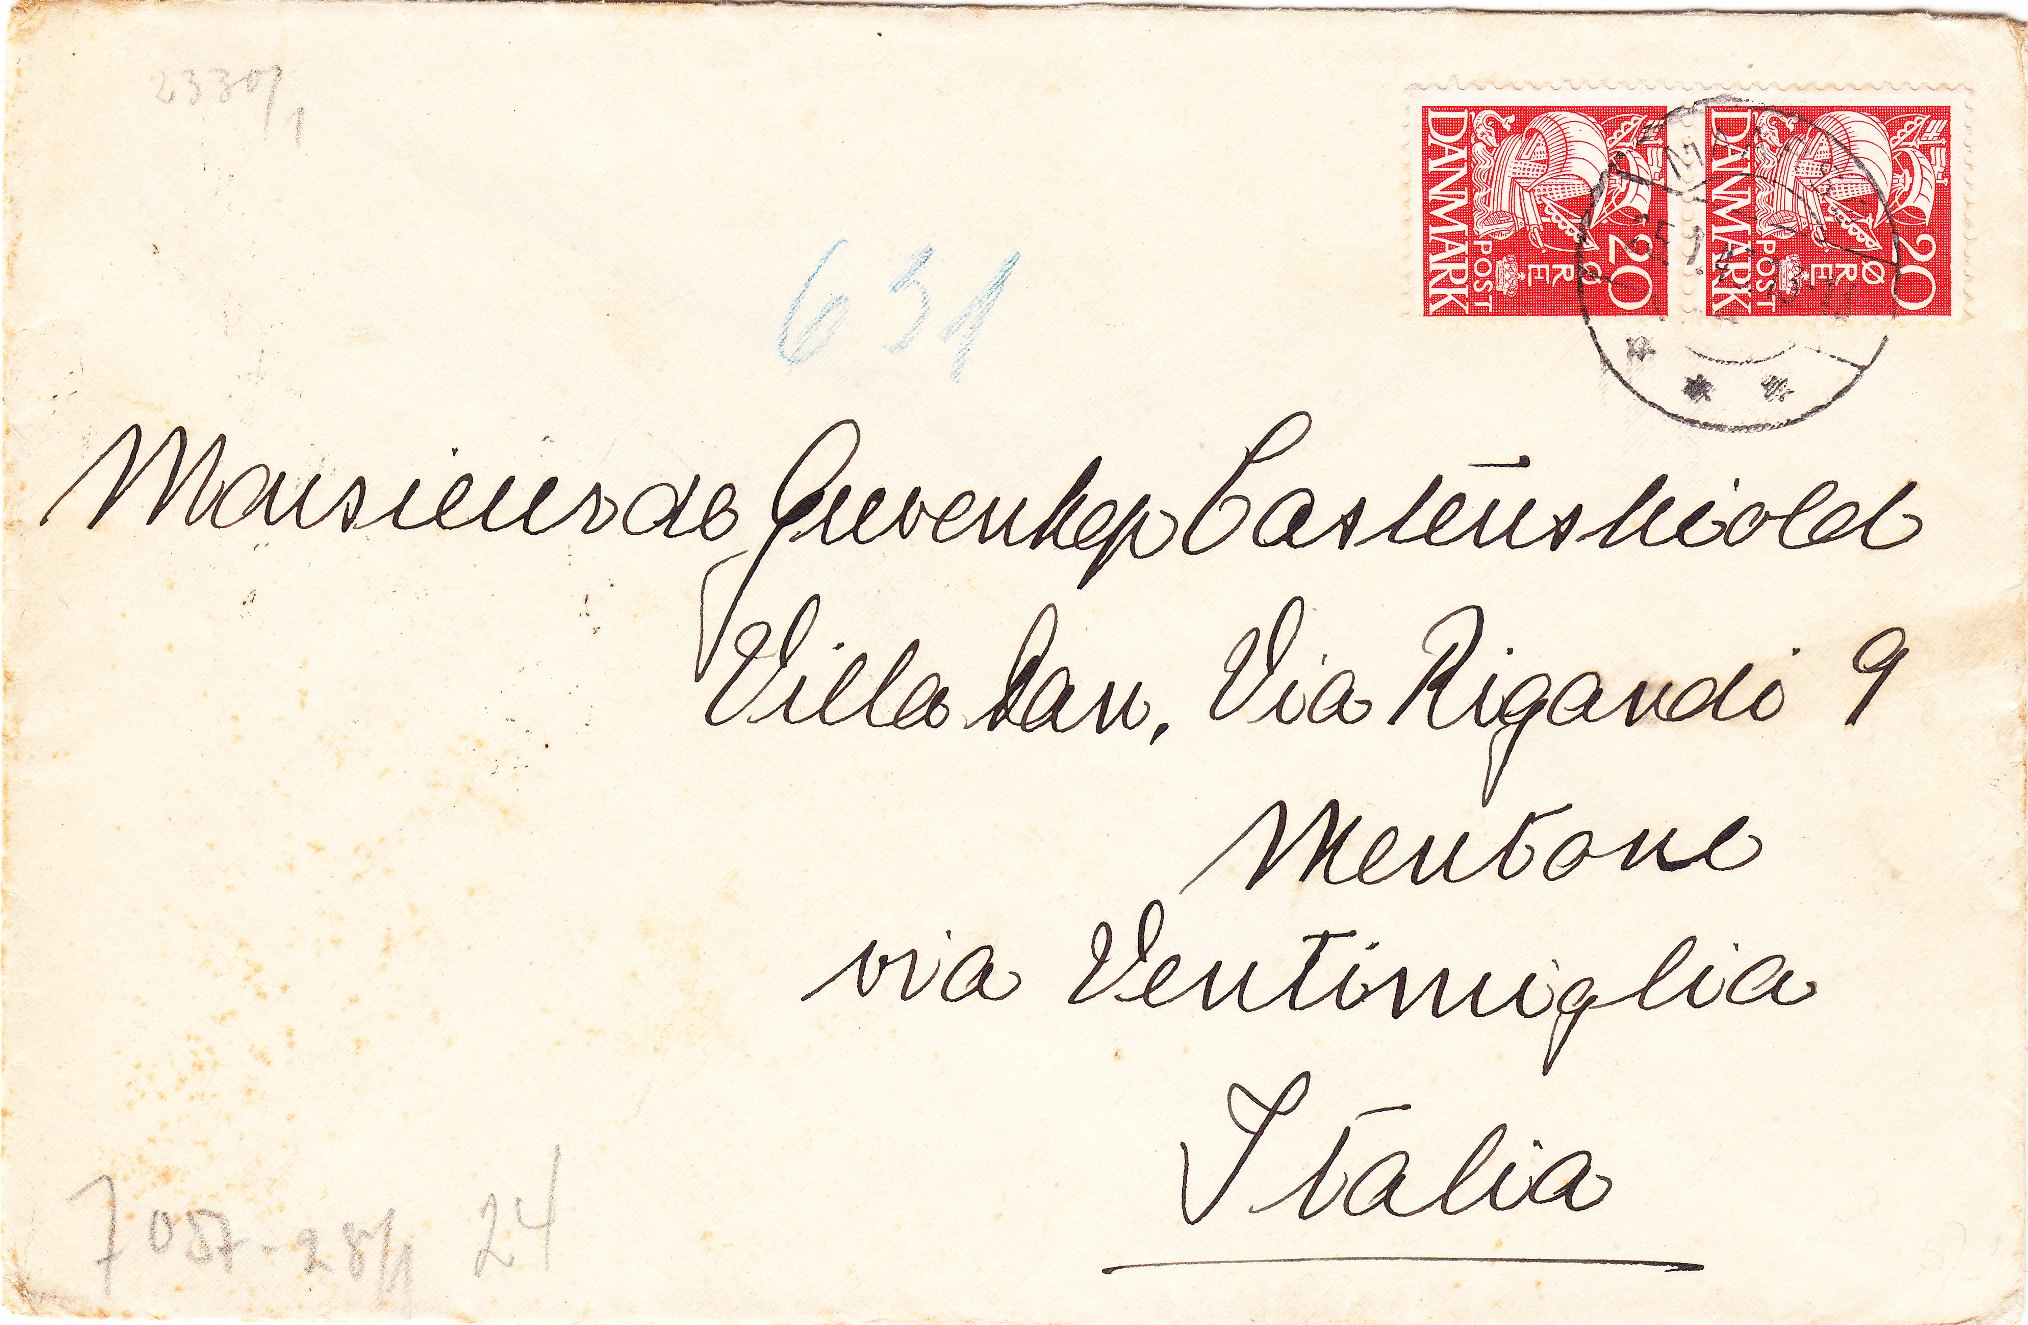 2330/1
DANMARK
POST
20 ØRE
DANMARK
POST
20 ØRE
631
Monsieur de Grevenkop Castenskiold
Villa Dan, Via Rigaudi 9
Mentone
via Ventimiglia
Italia
7 057-28/1 24